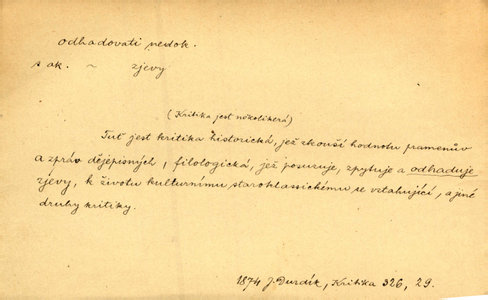 odhadovati nedok.
s ak. ~ zjevy
(Kritika jest několikerá)
Tuť jest kritika historická, jež zkouší hodnotu pramenův
a zpráv dějepisných, filologická, jež posuzuje, zpytuje a odhaduje
zjevy, k životu kulturnímu staroklassickému se vztahující, a jiné
druhy kritiky.
1874 J. Durdík, Kritika 326, 29.